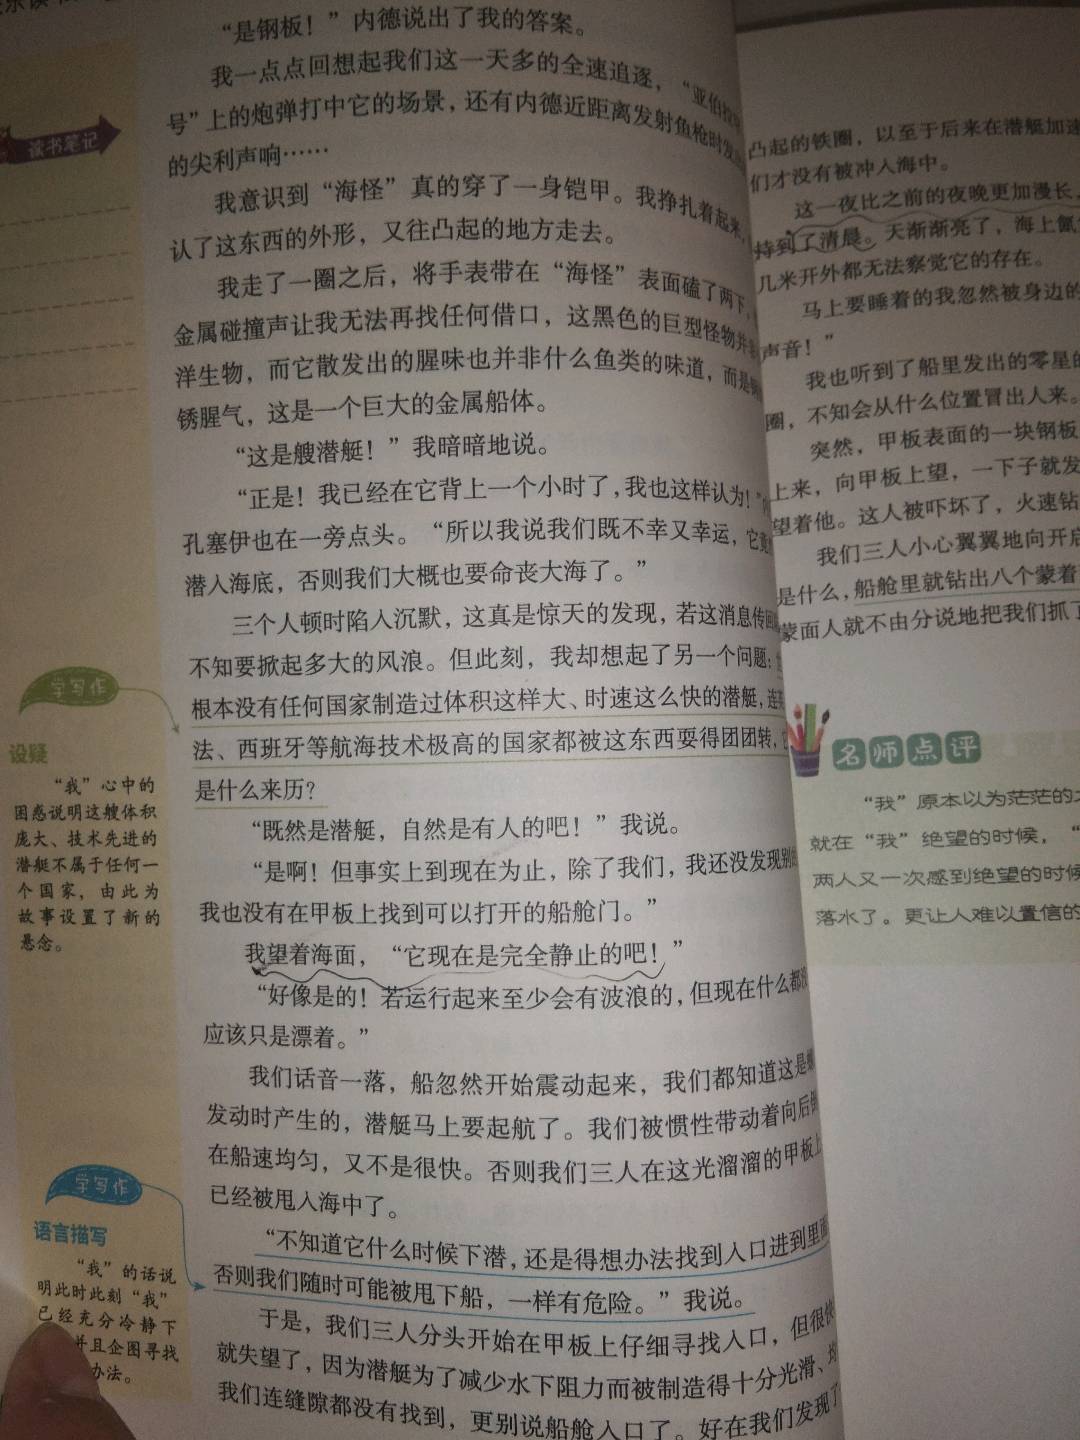 读书笔记
“是钢板！”内德说出了我的答案。
我一点点回想起我们这一天多的全速追逐，“亚伯拉
号”上的炮弹打中它的场景，还有内德近距离发射鱼枪时发
的尖利声响……
我意识到“海怪”真的穿了一身铠甲。我挣扎着起来，
认了这东西的外形，又往凸起的地方走去。
我走了一圈之后，将手表带在“海怪”表面磕了两下，
金属碰撞声让我无法再找任何借口，这黑色的巨型怪物并
洋生物，而它散发出的腥味也并非什么鱼类的味道，而是
锈腥气，这是一个巨大的金属船体。
“这是艘潜艇！”我暗暗地说。
“正是！我已经在它背上一个小时了，我也这样认为！”
孔塞伊也在一旁点头。“所以我说我们既不幸又幸运，它
潜入海底，否则我们大概也要命丧大海了。”
三个人顿时陷入沉默，这真是惊天的发现，若这消息传回
不知要掀起多大的风浪。但此刻，我却想起了另一个问题：
根本没有任何国家制造过体积这样大、时速这么快的潜艇，连
法、西班牙等航海技术极高的国家都被这东西耍得团团转，
是什么来历？
“既然是潜艇，自然是有人的吧！”我说。
“是啊！但事实上到现在为止，除了我们，我还没发现别
我也没有在甲板上找到可以打开的船舱门。”
我望着海面，“它现在是完全静止的吧！”
“好像是的！若运行起来至少会有波浪的，但现在什么都
应该只是漂着。”
我们话音一落，船忽然开始震动起来，我们都知道这是
发动时产生的，潜艇马上要起航了。我们被惯性带动着向后
在船速均匀，又不是很快。否则我们三人在这光溜溜的甲板上
已经被甩入海中了。
“不知道它什么时候下潜，还是得想办法找到入口进到里面
否则我们随时可能被甩下船，一样有危险。”我说。
于是，我们三人分头开始在甲板上仔细寻找入口，但很快
就失望了，因为潜艇为了减少水下阻力而被制造得十分光滑、
我们连缝隙都没有找到，更别说船舱入口了。好在我们发现了
学写作
设疑
“我”心中的
困惑说明这艘体积
庞大、技术先进的
潜艇不属于任何一
个国家，由此为
故事设置了新的
悬念。
学写作
语言描写
“我”的话说
明此时此刻“我”
已经充分冷静下
并且企图寻找
办法。
凸起的铁圈，以至于后来在潜艇加速
们才没有被冲入海中。
这一夜比之前的夜晚更加漫长，
持到了清晨。天渐渐亮了，海上氤
几米开外都无法察觉它的存在。
马上要睡着的我忽然被身边的
声音！”
我也听到了船里发出的零星的
圈，不知会从什么位置冒出人来。
突然，甲板表面的一块钢板
上来，向甲板上望，一下子就发
望着他。这人被吓坏了，火速钻
我们三人小心翼翼地向开启
是什么，船舱里就钻出八个蒙着
蒙面人就不由分说地把我们抓了
名师点评
“我”原本以为茫茫的
就在“我”绝望的时候，“
两人又一次感到绝望的时候
落水了。更让人难以置信的